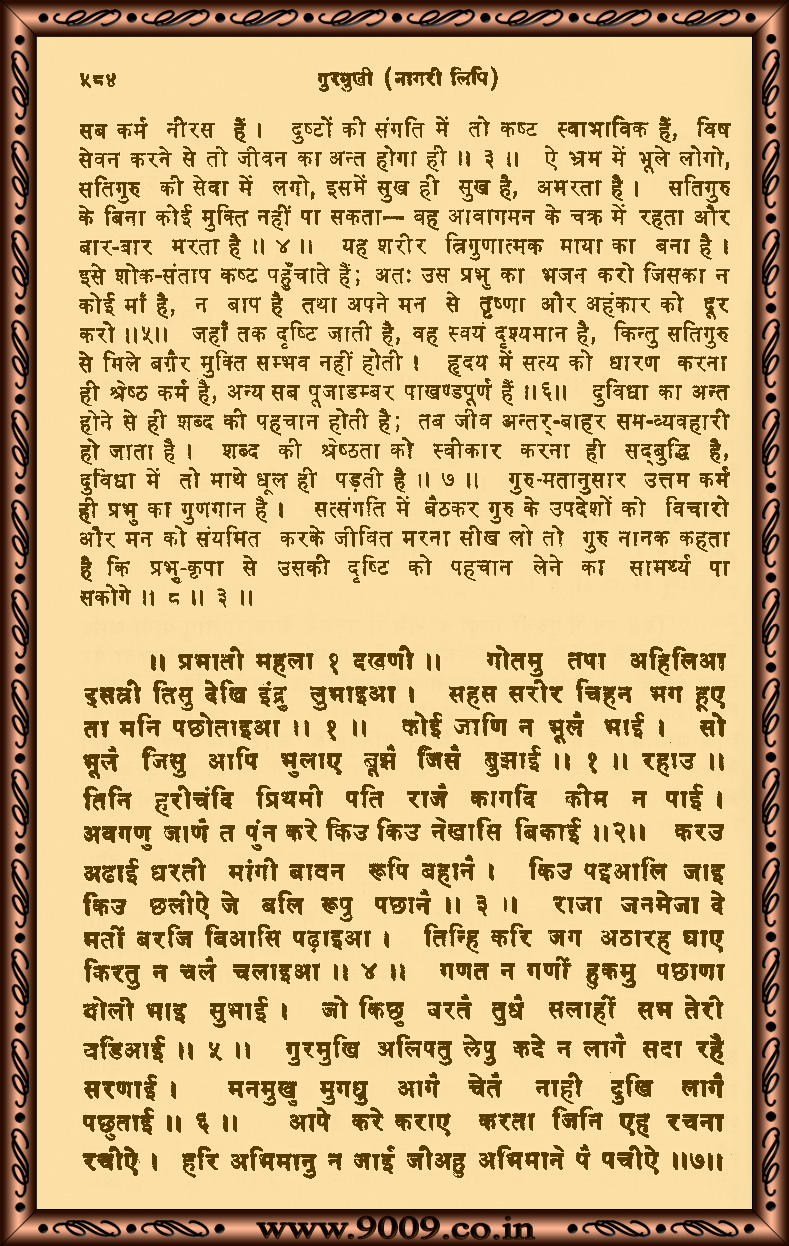 ५८४ गुरमुखी (नागरी लिपि)
सब कर्म नीरस हैं । दुष्टों की संगति में तो कष्ट स्वाभाविक हैं, विष
सेवन करने से तो जीवन का अन्त होगा ही ॥ ३ ॥ ऐ भ्रम में भूले लोगो,
सतिगुरु की सेवा में लगो, इसमें सुख ही सुख है, अमरता है । सतिगुरु
के बिना कोई मुक्ति नहीं पा सकता— वह आवागमन के चक्र में रहता और
बार-बार मरता है ॥ ४ ॥ यह शरीर त्रिगुणात्मक माया का बना है ।
इसे शोक-संताप कष्ट पहुँचाते हैं; अतः उस प्रभु का भजन करो जिसका न
कोई माँ है, न बाप है तथा अपने मन से तृष्णा और अहंकार को दूर
करो ॥५॥ जहाँ तक दृष्टि जाती है, वह स्वयं दृश्यमान है, किन्तु सतिगुरु
से मिले बग़ैर मुक्ति सम्भव नहीं होती । हृदय में सत्य को धारण करना
ही श्रेष्ठ कर्म है, अन्य सब पूजाडम्बर पाखण्डपूर्ण हैं ॥६॥ दुविधा का अन्त
होने से ही शब्द की पहचान होती है; तब जीव अन्तर्-बाहर सम-व्यवहारी
हो जाता है । शब्द की श्रेष्ठता को स्वीकार करना ही सद्बुद्धि है,
दुविधा में तो माथे धूल ही पड़ती है ॥ ७ ॥ गुरु-मतानुसार उत्तम कर्म
ही प्रभु का गुणगान है । सत्संगति में बैठकर गुरु के उपदेशों को विचारो
और मन को संयमित करके जीवित मरना सीख लो तो गुरु नानक कहता
है कि प्रभु-कृपा से उसकी दृष्टि को पहचान लेने का सामर्थ्य पा
सकोगे ॥ ८ ॥ ३ ॥
॥ प्रभाती महला १ दखणी ॥ गोतमु तपा अहिलिआ
इसत्री तिसु देखि इंद्रु लुभाइआ । सहस सरीर चिहन भग हूए
ता मनि पछोताइआ ॥ १ ॥ कोई जाणि न भूलै भाई । सो
भूलै जिसु आपि भुलाए बूझै जिसै बुझाई ॥ १ ॥ रहाउ ॥
तिनि हरीचंदि प्रिथमी पति राजै कागदि कीम न पाई ।
अवगणु जाणै त पुंन करे किउ किउ नेखासि बिकाई ॥२॥ करउ
अढाई धरती मांगी बावन रूपि बहानै । किउ पइआलि जाइ
किउ छलीऐ जे बलि रूपु पछानै ॥ ३ ॥ राजा जनमेजा दे
मतीं बरजि बिआसि पढ़ाइआ । तिन्हि करि जग अठारह घाए
किरतु न चलै चलाइआ ॥ ४ ॥ गणत न गणीं हुकमु पछाणा
बोली भाइ सुभाई । जो किछु वरतै तुधै सलाहीं सभ तेरी
वडिआई ॥ ५ ॥ गुरमुखि अलिपतु लेपु कदे न लागै सदा रहै
सरणाई । मनमुखु मुगधु आगै चेतै नाही दुखि लागै
पछुताई ॥ ६ ॥ आपे करे कराए करता जिनि एह रचना
रचीऐ । हरि अभिमानु न जाई जीअहु अभिमाने पै पचीऐ ॥७॥
www.9009.co.in